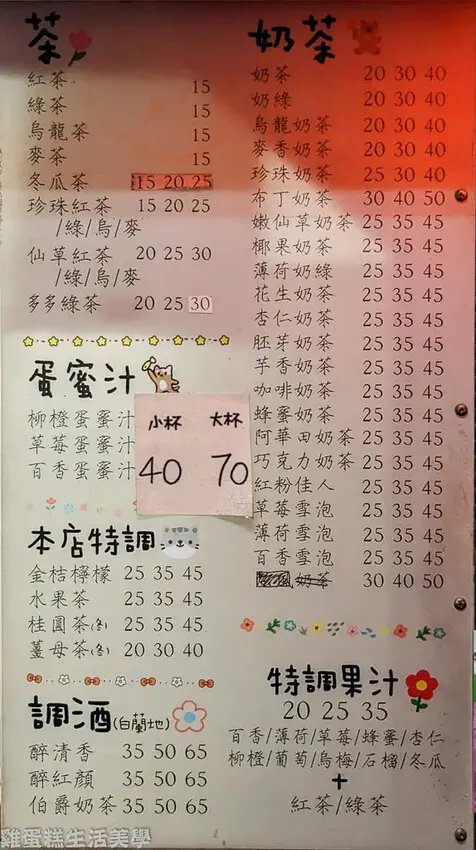 茶
紅茶 15
綠茶 15
烏龍茶 15
麥茶 15
冬瓜茶 15 20 25
珍珠紅茶 15 20 25
/綠/烏/麥
仙草紅茶 20 25 30
/綠/烏/麥
多多綠茶 20 25 30
蛋蜜汁
柳橙蛋蜜汁
草莓蛋蜜汁
百香蛋蜜汁
小杯 大杯
40 70
本店特調
金桔檸檬 25 35 45
水果茶 25 35 45
桂圓茶(冬) 25 35 45
薑母茶(冬) 20 30 40
調酒(白蘭地)
醉清香 35 50 65
醉紅顏 35 50 65
伯爵奶茶 35 50 65
奶茶
奶茶 20 30 40
奶綠 20 30 40
烏龍奶茶 20 30 40
麥香奶茶 20 30 40
珍珠奶茶 25 30 40
布丁奶茶 30 40 50
嫩仙草奶茶 25 35 45
椰果奶茶 25 35 45
薄荷奶綠 25 35 45
花生奶茶 25 35 45
杏仁奶茶 25 35 45
胚芽奶茶 25 35 45
芋香奶茶 25 35 45
咖啡奶茶 25 35 45
蜂蜜奶茶 25 35 45
阿華田奶茶 25 35 45
巧克力奶茶 25 35 45
紅粉佳人 25 35 45
草莓雪泡 25 35 45
薄荷雪泡 25 35 45
百香雪泡 25 35 45
奶茶 30 40 50
特調果汁
20 25 35
百香/薄荷/草莓/蜂蜜/杏仁
柳橙/葡萄/烏梅/石榴/冬瓜
+
紅茶/綠茶
雞蛋糕生活美學